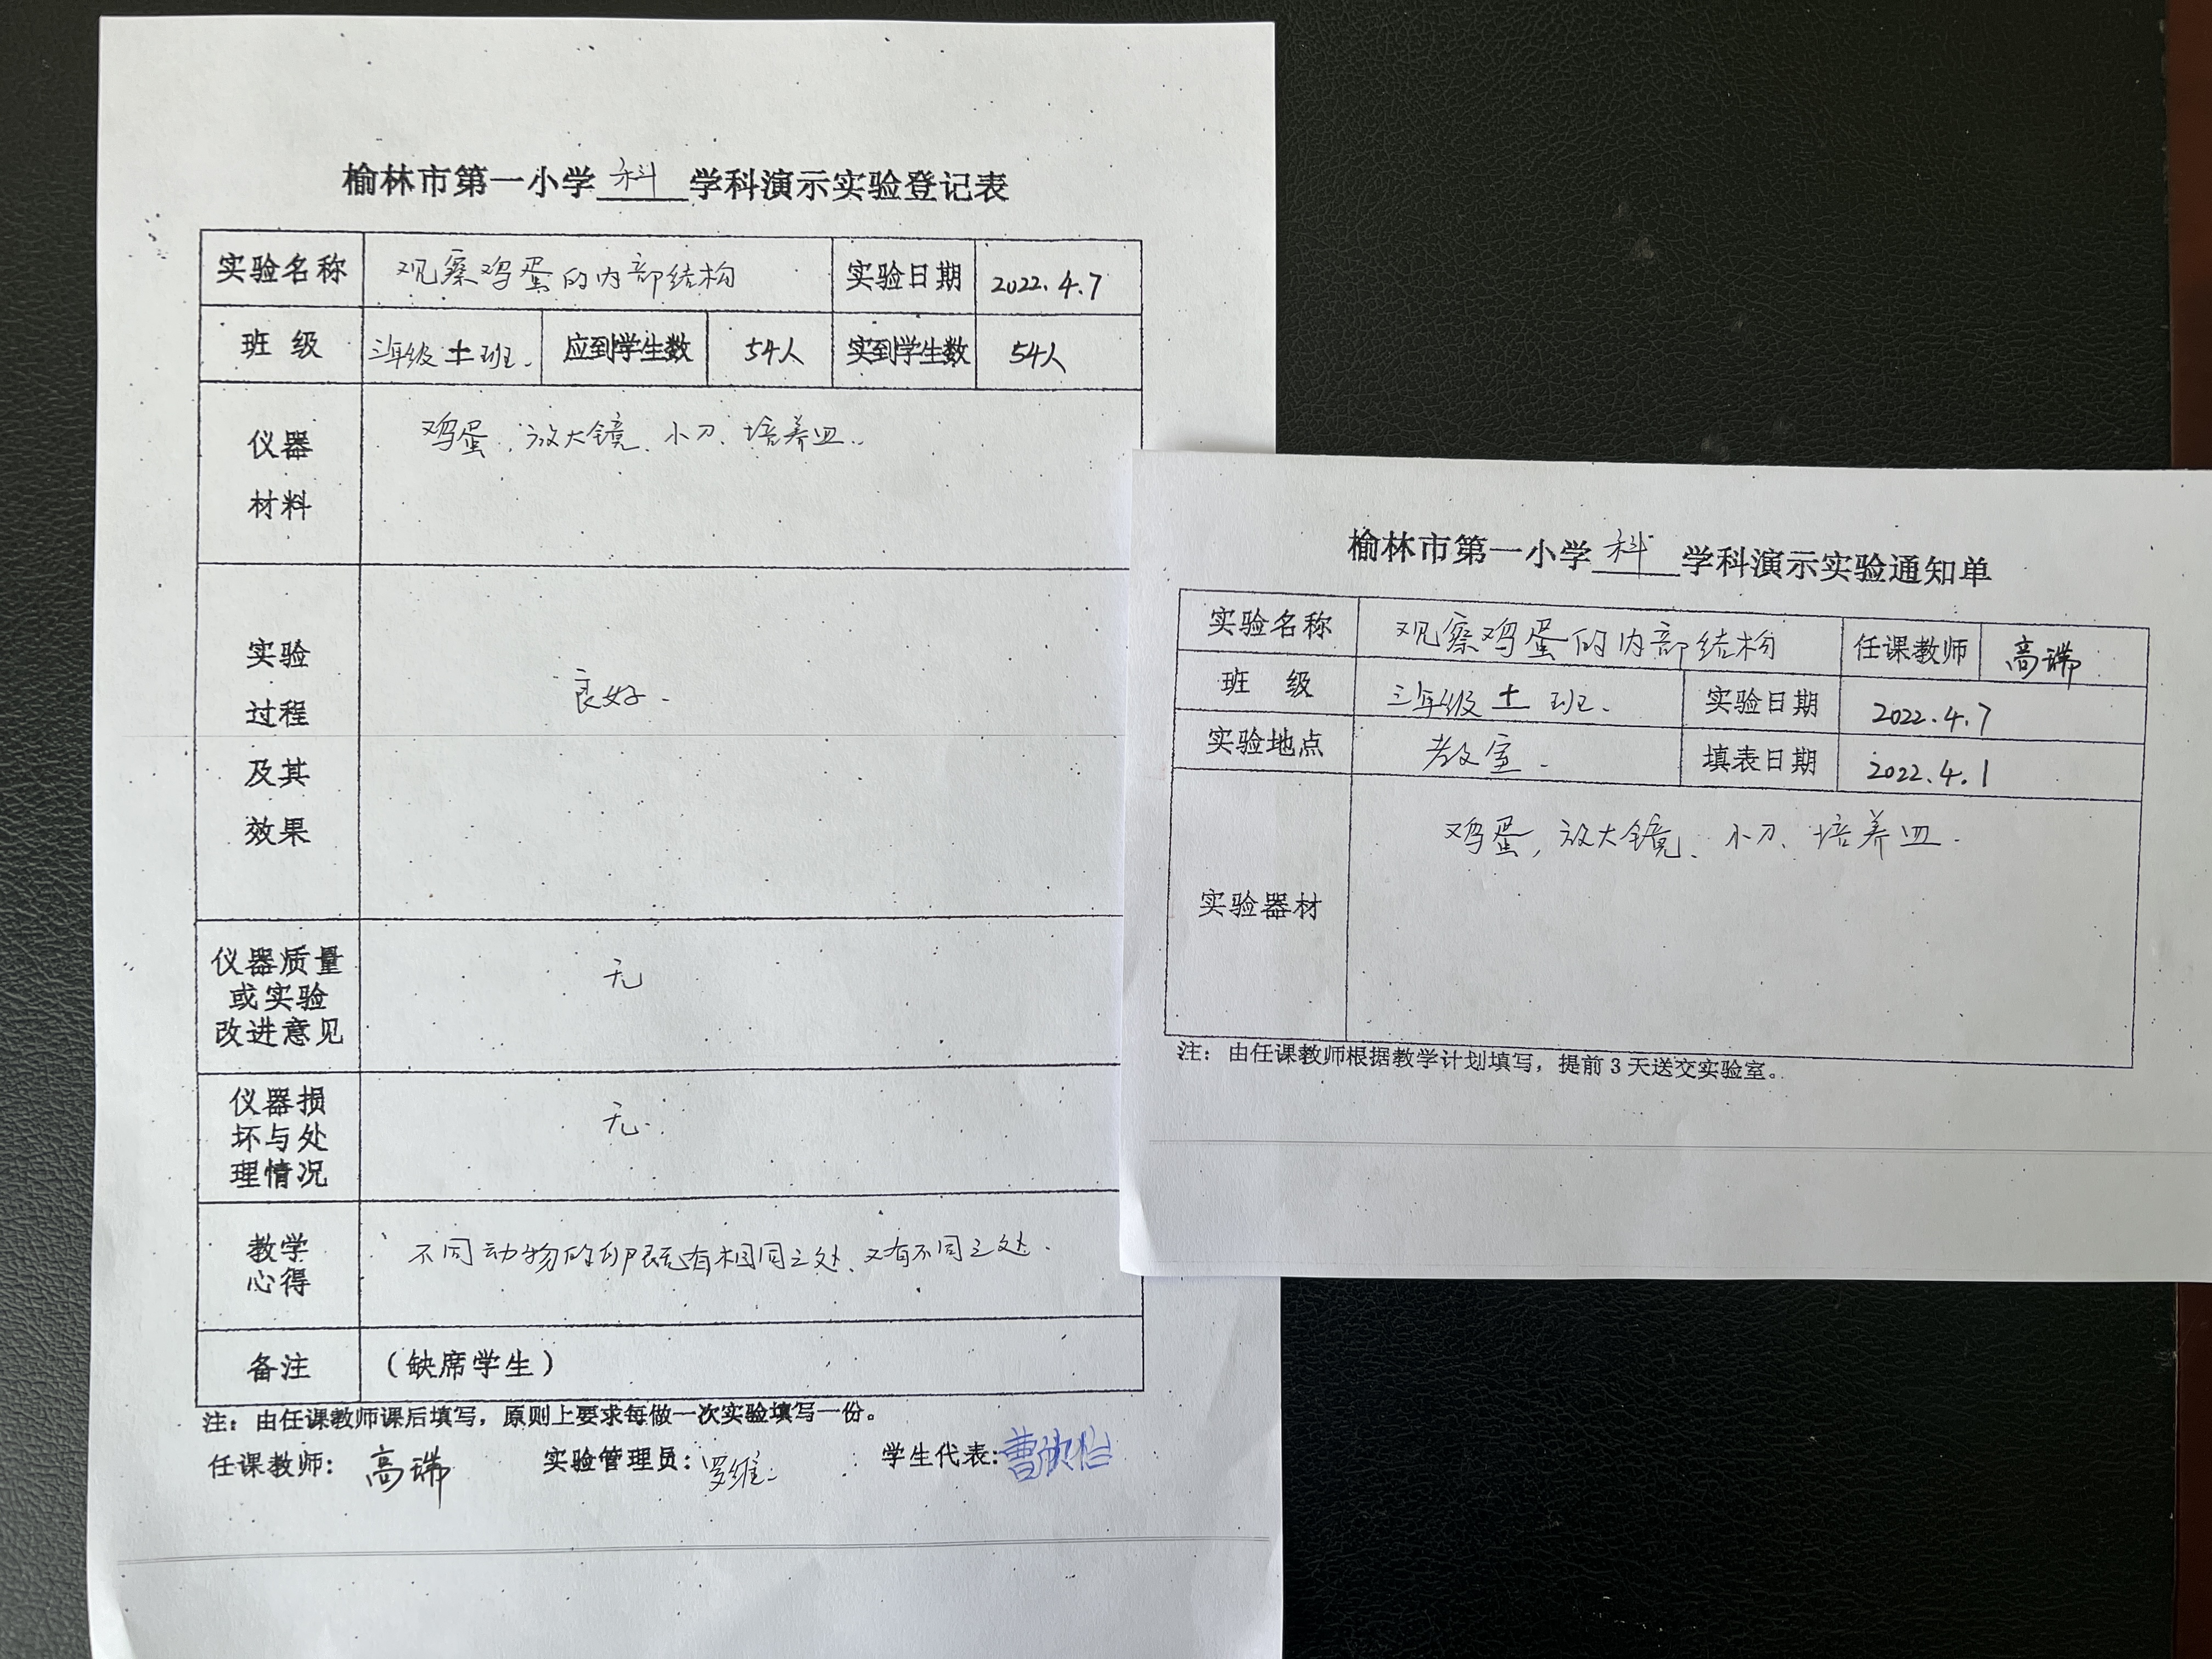 榆林市第一小学 科 学科演示实验登记表
实验名称 观察鸡蛋的内部结构 实验日期 2022.4.7
班 级 三年级 十一 班. 应到学生数 54人 实到学生数 54人
仪器 鸡蛋、放大镜、小刀、培养皿.
材料
实验
过程 良好.
及其
效果
仪器质量
或实验 无
改进意见
仪器损
坏与处 无.
理情况
教学 不同动物的卵既有相同之处、又有不同之处.
心得
备注 (缺席学生)
注：由任课教师课后填写，原则上要求每做一次实验填写一份。
任课教师：高瑞 实验管理员：罗维 学生代表：曹欣怡
榆林市第一小学 科 学科演示实验通知单
实验名称 观察鸡蛋的内部结构 任课教师 高瑞
班 级 三年级 十一 班. 实验日期 2022.4.7
实验地点 教室. 填表日期 2022.4.1
鸡蛋, 放大镜、小刀、培养皿.
实验器材
注：由任课教师根据教学计划填写，提前3天送交实验室。